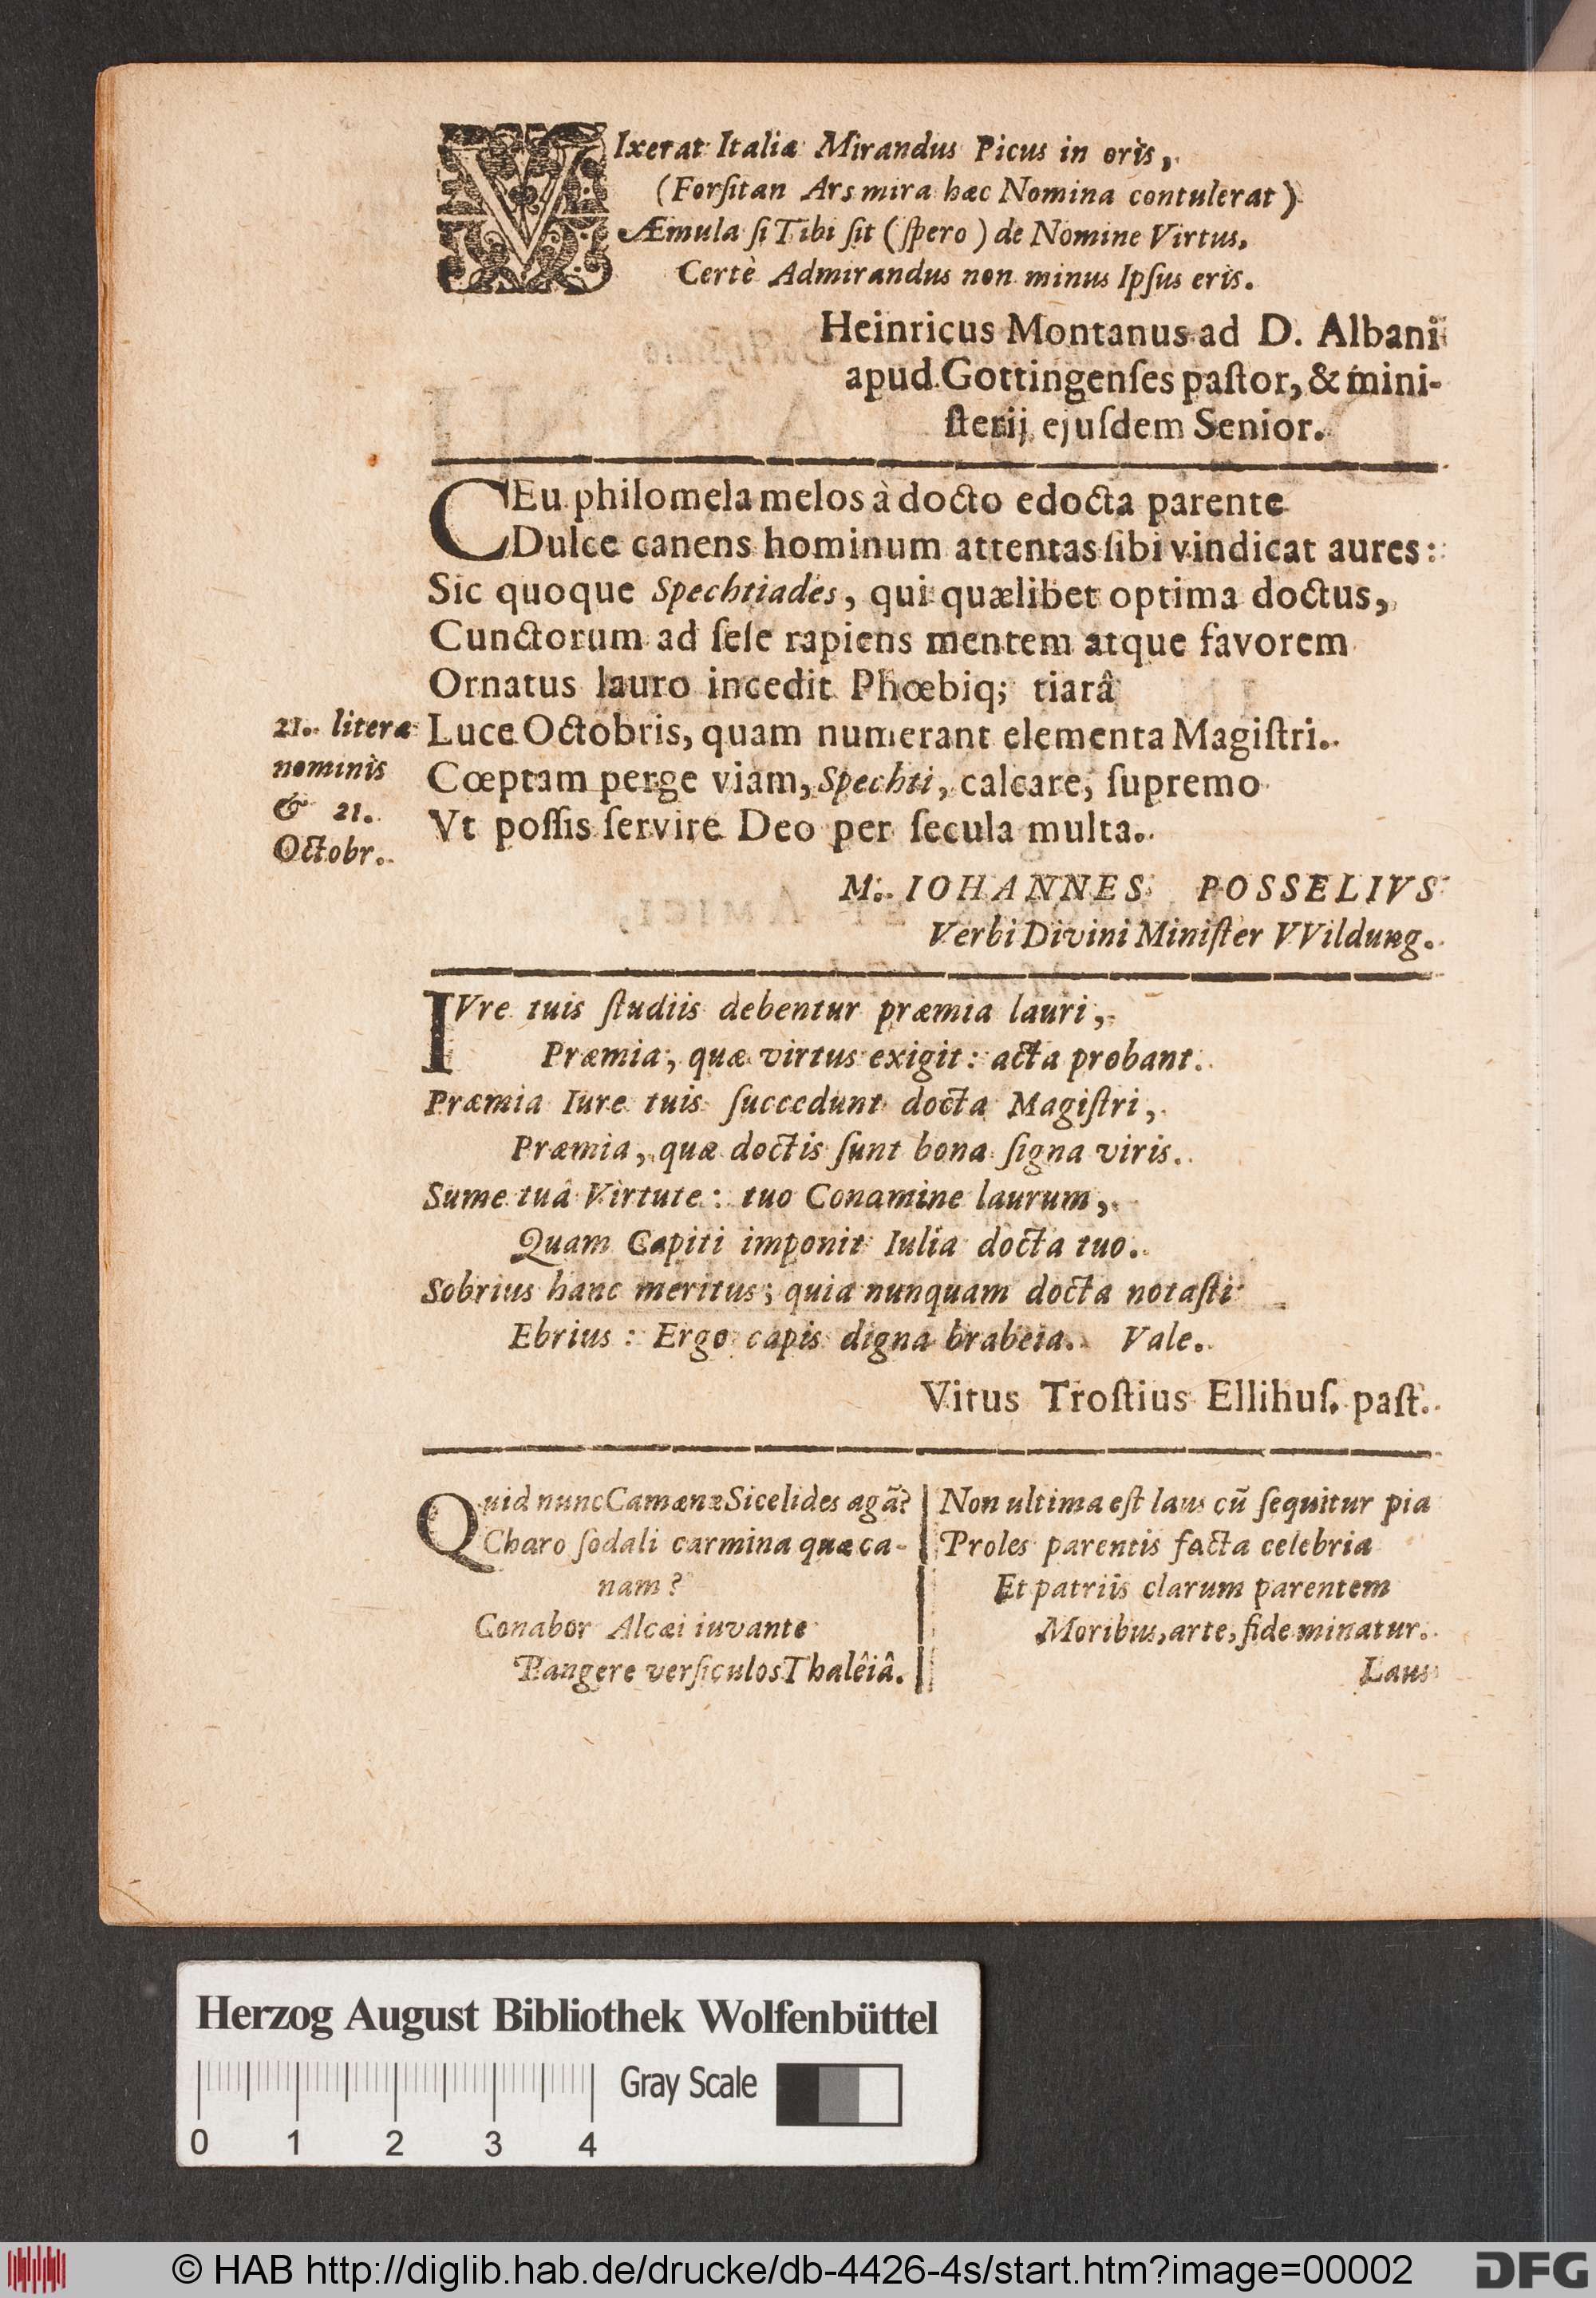 VIxerat Italiæ Mirandus Picus in oris,
(Forſitan Ars mira hæc Nomina contulerat)
Æmula ſi Tibi ſit (ſpero) de Nomine Virtus,
Certè Admirandus non minus Ipſus eris.
Heinricus Montanus ad D. Albani
apud Gottingenſes paſtor, & mini-
ſterij ejuſdem Senior.
CEu philomela melos à docto edocta parente
Dulce canens hominum attentas ſibi vindicat aures:
Sic quoque Spechtiades, qui quælibet optima doctus,
Cunctorum ad ſeſe rapiens mentem atque favorem
Ornatus lauro incedit Phœbiq; tiarâ
Luce Octobris, quam numerant elementa Magiſtri.
Cœptam perge viam, Spechti, calcare, ſupremo
Vt poſſis ſervire Deo per ſecula multa.
21. literæ
nominis
& 21.
Octobr.
M. IOHANNES POSSELIVS
Verbi Divini Miniſter VVildung.
IVre tuis ſtudiis debentur præmia lauri,
Præmia, quæ virtus exigit: acta probant.
Præmia Iure tuis ſuccedunt docta Magiſtri,
Præmia, quæ doctis ſunt bona ſigna viris.
Sume tuâ Virtute: tuo Conamine laurum,
Quam Capiti imponit Iulia docta tuo.
Sobrius hanc meritus; quia nunquam docta notaſti
Ebrius: Ergo capis digna brabeia. Vale.
Vitus Troſtius Ellihuſ. paſt.
Quid nunc Camænæ Sicelides agā?
Charo ſodali carmina quæ ca-
nam?
Conabor Alcæi iuvante
Pangere verſiculos Thalêiâ.
Non ultima eſt laus cū ſequitur pia
Proles parentis facta celebria
Et patriis clarum parentem
Moribus, arte, fide minatur.
Laus
Herzog August Bibliothek Wolfenbüttel
Gray Scale
0 1 2 3 4
© HAB http://diglib.hab.de/drucke/db-4426-4s/start.htm?image=00002
DFG